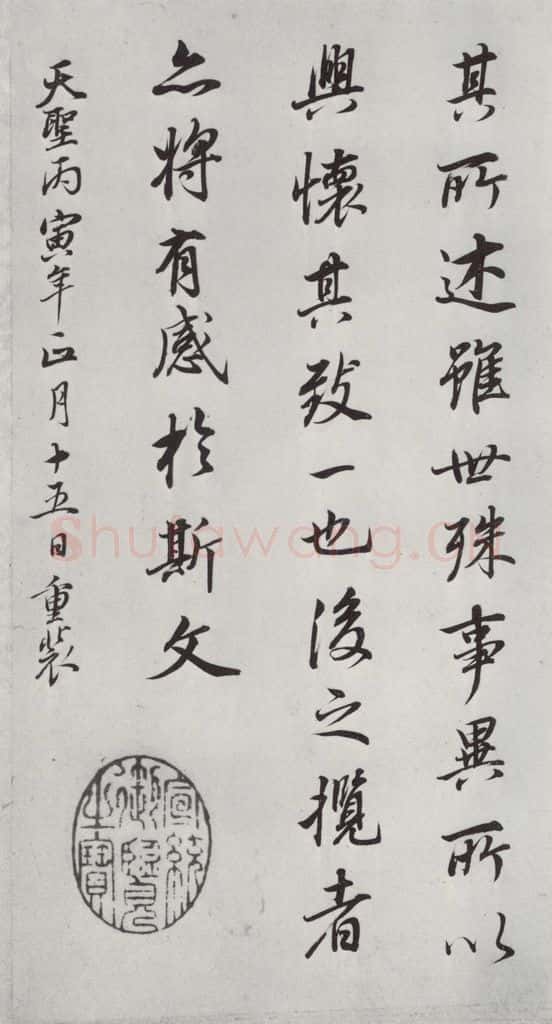 其所述雖世殊事異所以
興懷其致一也後之攬者
亦將有感於斯文
天聖丙寅年正月十五日重裝
宣統御覽之寶
Shufawang.cn